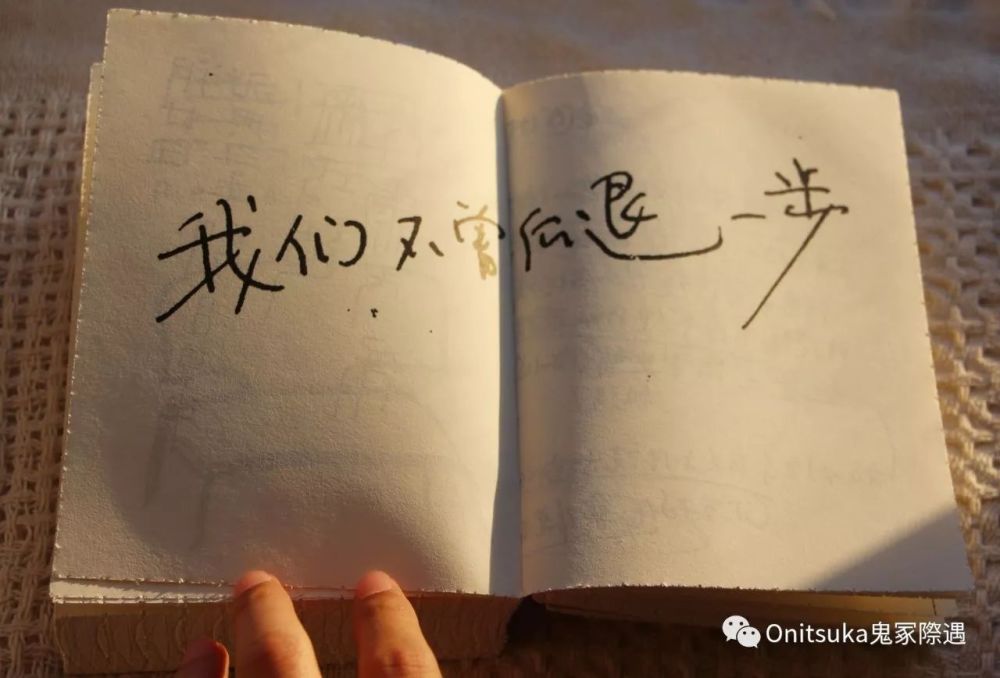 我们不曾后退一步
Onitsuka鬼冢際遇